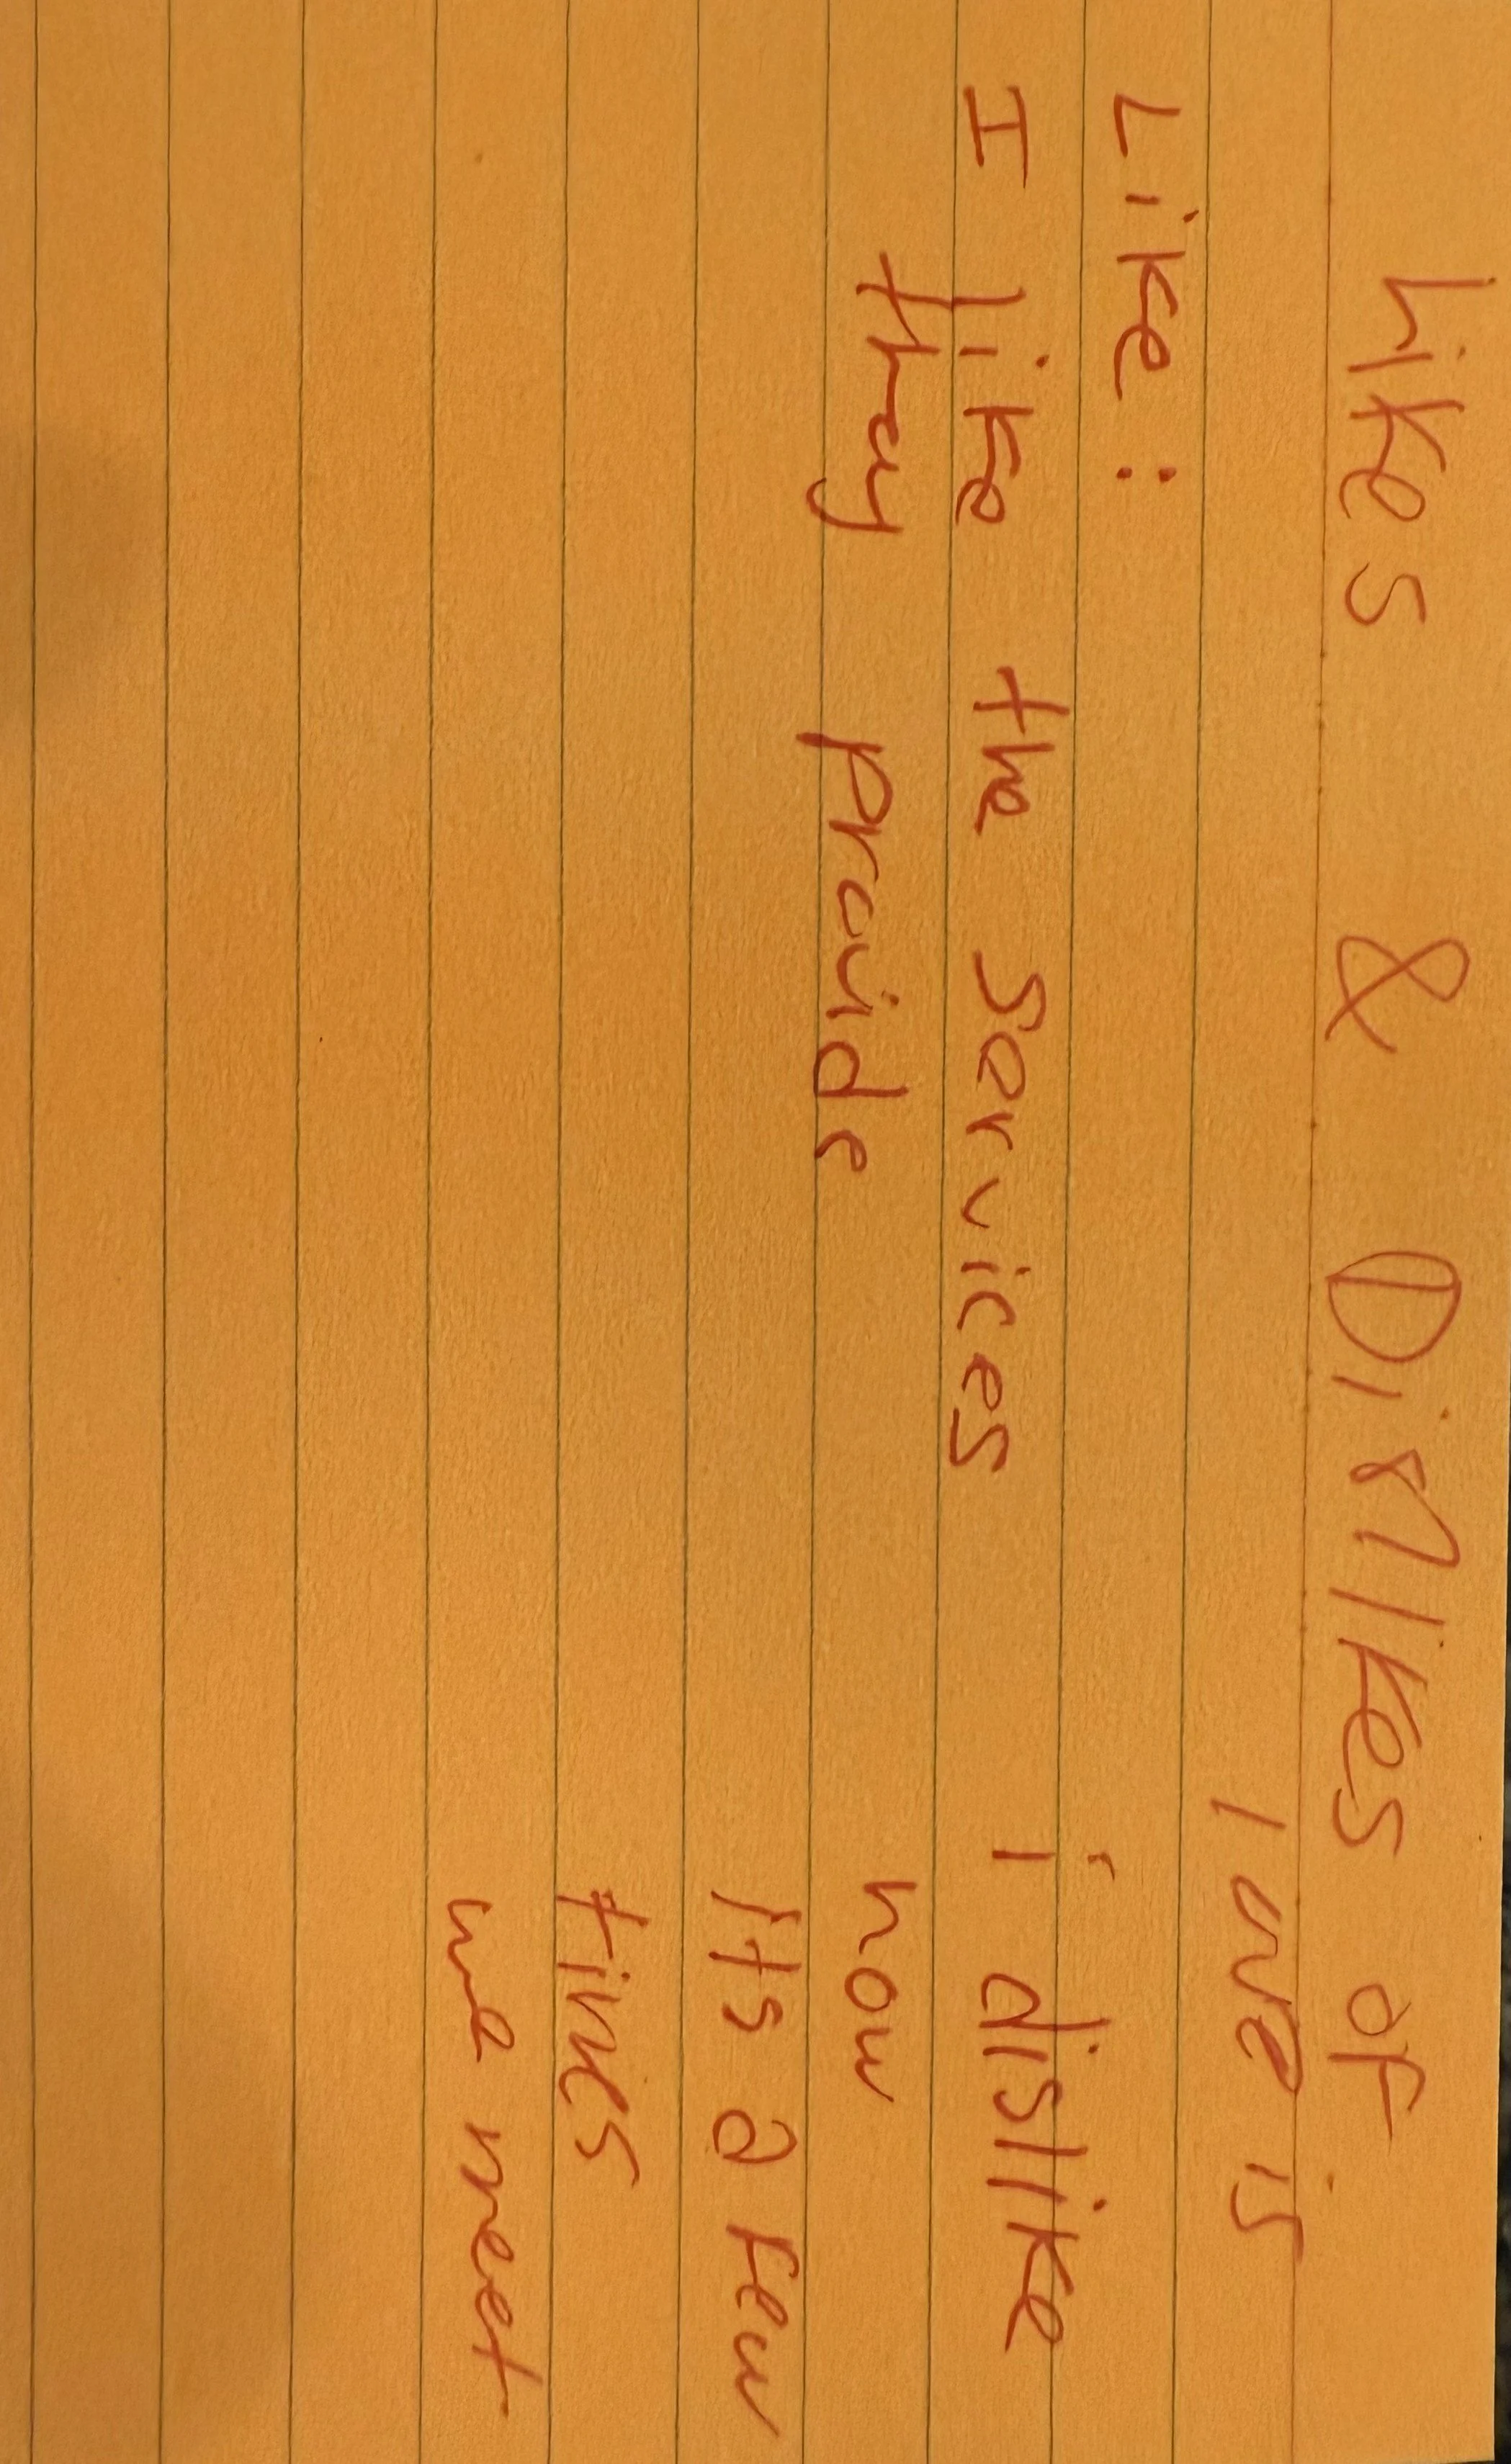 Likes & Dislikes of
Like:
I like the services
they provide
i dislike
how
Its a few
times
we meet